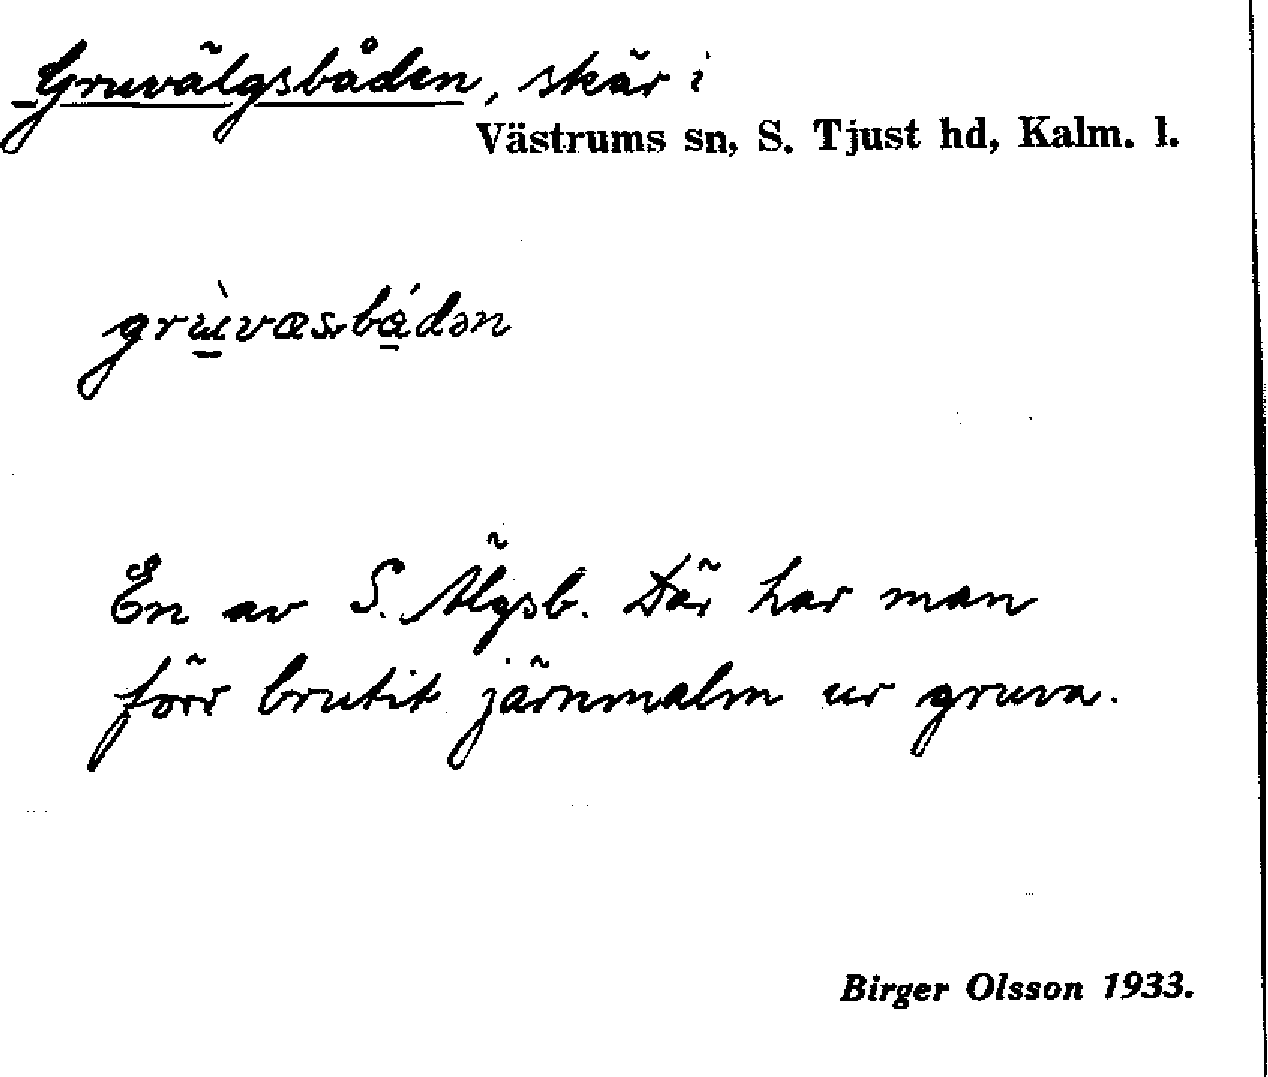 Gruvälgsbåden, skär i
Västrums sn, S. Tjust hd, Kalm. l.
En av S. Älgsb. Där har man
förr brutit järnmalm ur gruva.
Birger Olsson 1933.